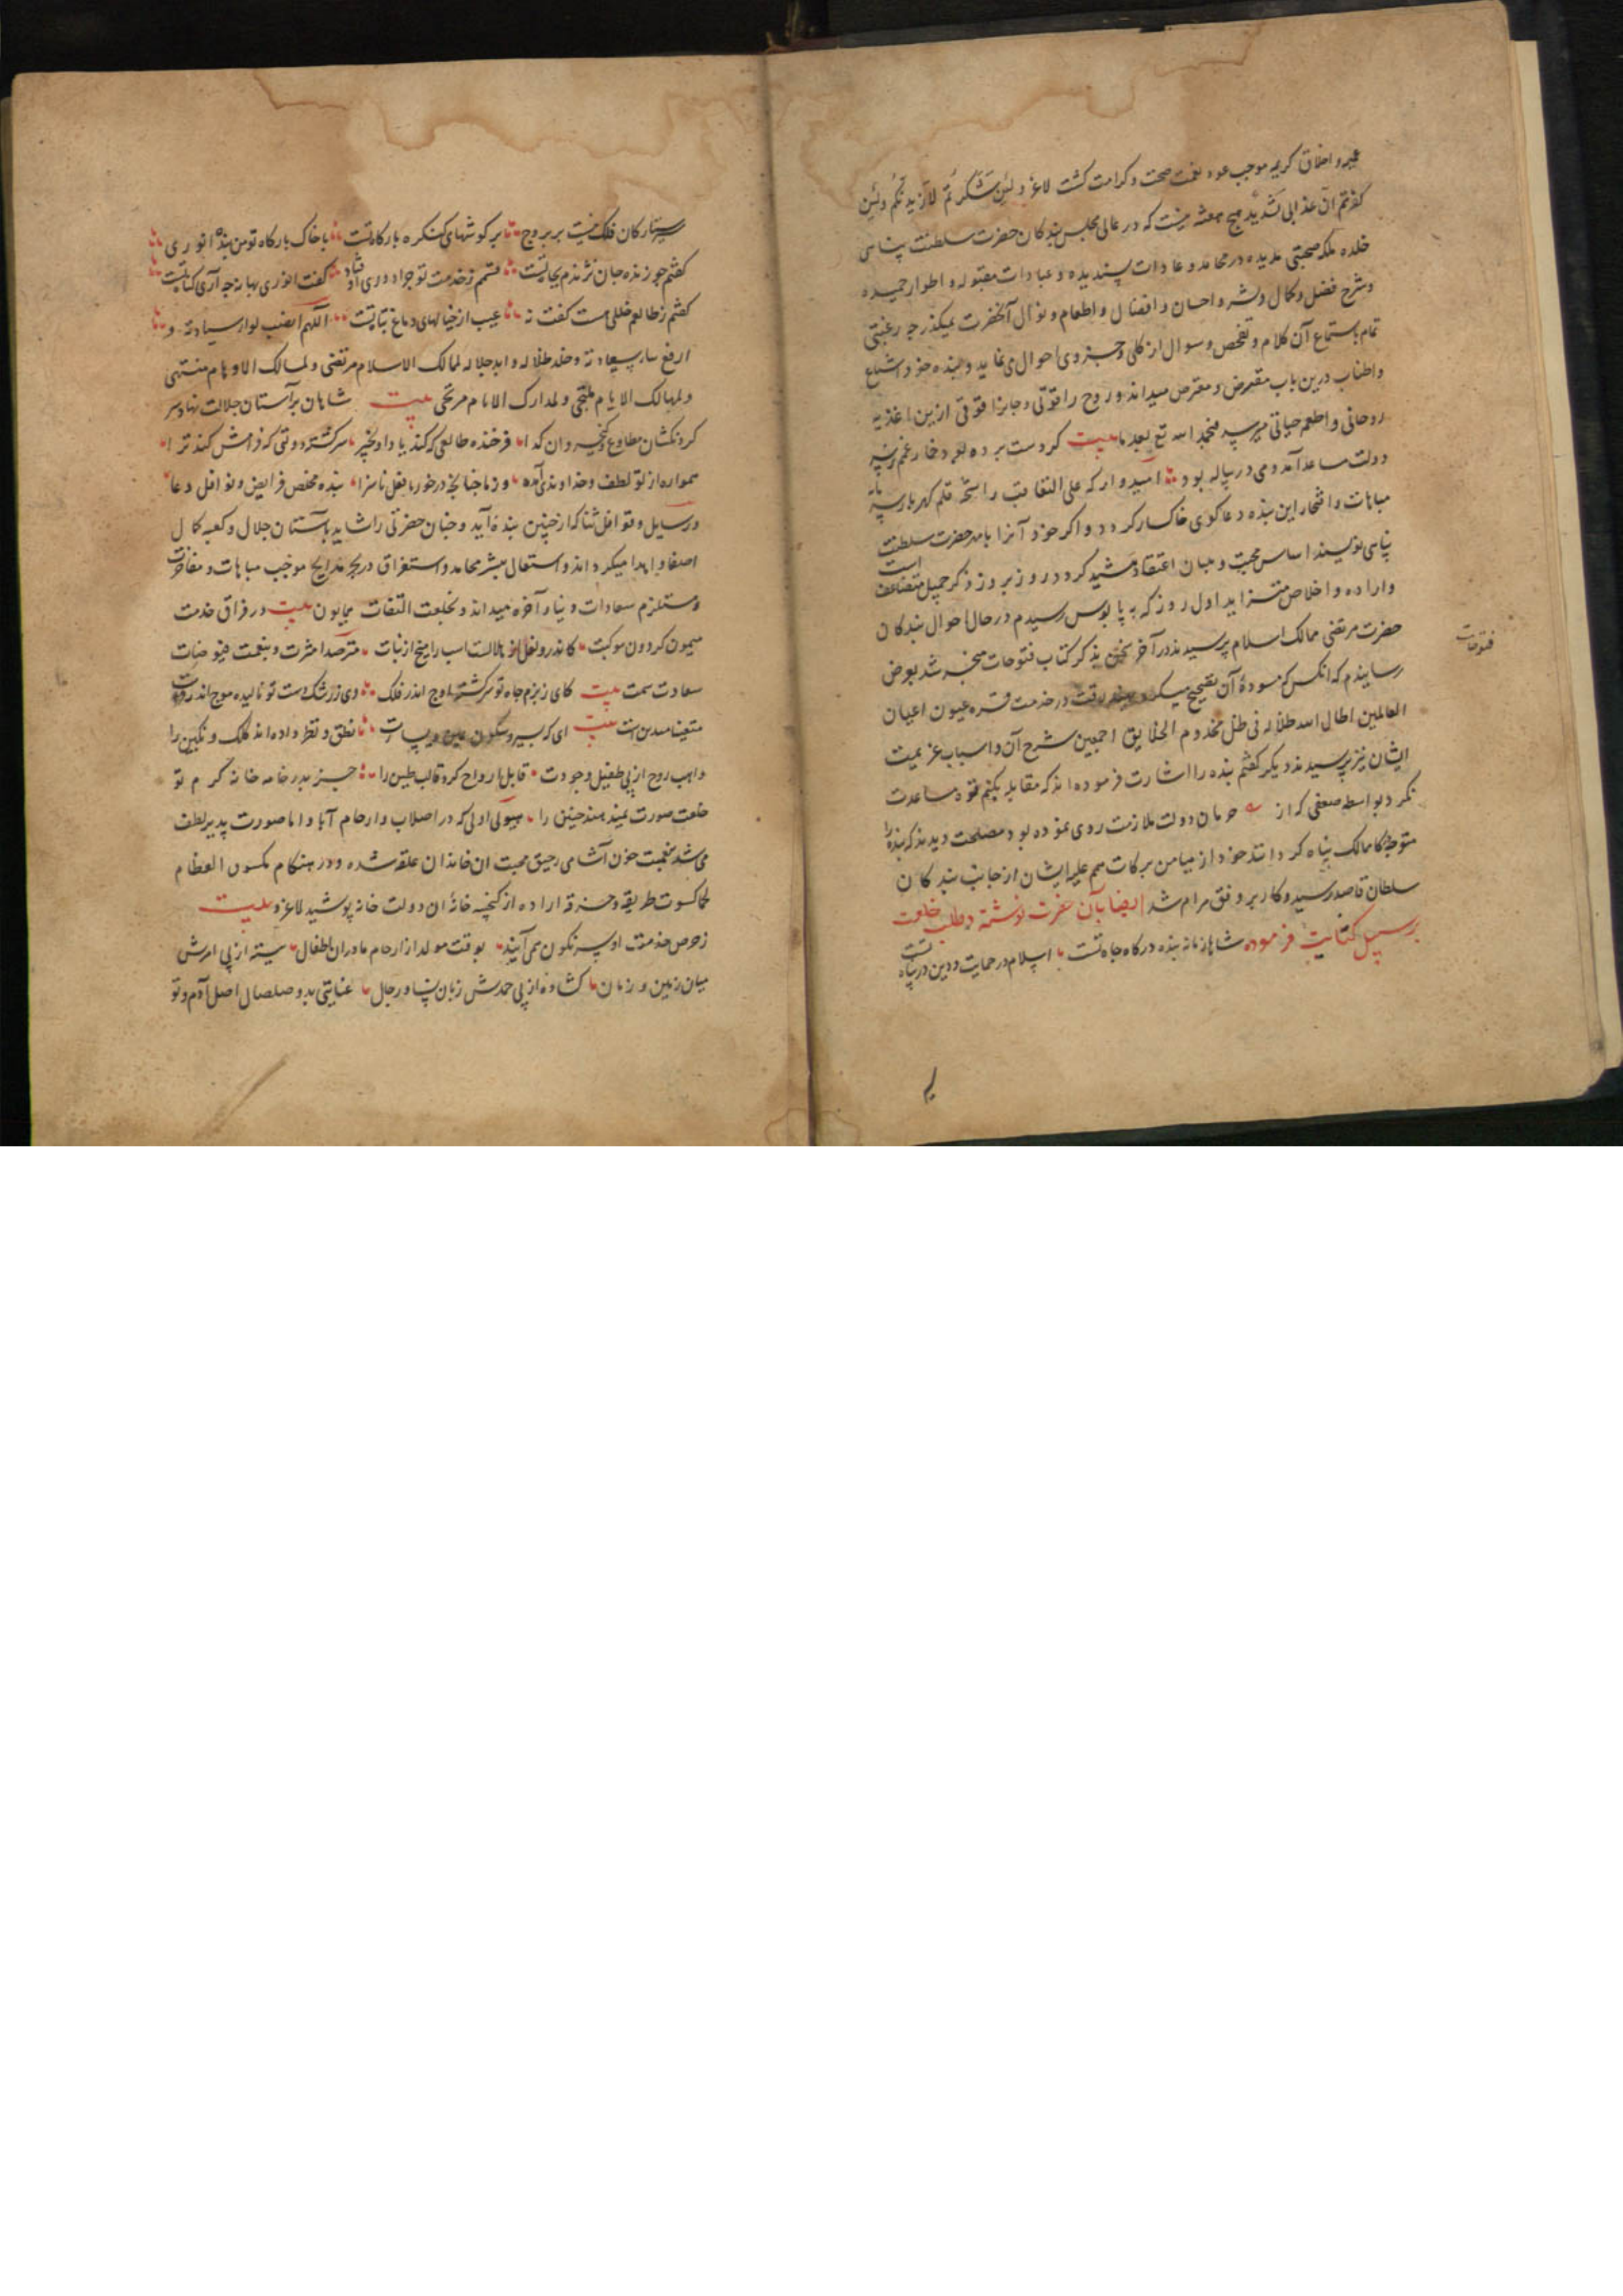 عمیر و اخلاق کریم موجب عود نعمت صحت و کرامت کشت لاغز و لئن شکرتم لازیدنکم ولئن
کفرتم ان عذابی لشدید هیچ هفته نیست که در عالی مجلس بندکان حضرت سلطنت پناهی
خلده ملکه صحبتی مدیده در محامد و عادات پسندیده و عبادات مقبوله و اطوار حمیده
و شرح فضل و کمال و نشر و احسان و افضال و اطعام و نوال آنحضرت نمیکذرد چه رغبتی
تمام باستماع آن کلام و تفحص و سوال از کلی و جزوی احوال می نماید و بنده خود اشباع
و اطناب درین باب مفترض و مفترض میداند و روح را قوتی و جانرا قوتی ازین اغذیه
روحانی و اطعمه حیاتی میرسد فنحمد الله تع بعد ما بیت کر دست برده بود خمار غمم
دولت مساعد آمد و می در پیاله بود امیدوار که علی التعاقب راشحه قلم کهربار
مباهات و افتخار این بنده دعاکوی خاکسار کردد و اکر خود آنرا بنامه حضرت سلطنت
پناهی نویسند اساس محبت و مبان اعتقاد مشید کردد روز بروز ذکر جمیل متضاعف است
و اراده و اخلاص متزاید اول روز که به پابوس رسیدم در حال احوال بندکان
حضرت مرتضی ممالک اسلام پرسیدند در آخر سخن بذکر کتاب فتوحات منجر شد بعرض
فتوحات
رسانیدم که انکس که مسوده آن تصحیح میکرد در خدمت قره عیون اعیان
العالمین اطال الله ظلاله فی ظل مخدوم الخلایق اجمعین شرح آن و اسباب عزیمت
ایشان نیز پرسیدند دیکر کفتم بنده را اشارت فرموده اند که مقابله بکنم خود مساعدت
نکرد بواسطه ضعفی که از حرمان دولت ملازمت روی نموده بود مصلحت دیدند که بنده را
متوجه کا ممالک پناه کردانند خود از میامن برکات همم علیه ایشان از جانب بندکان
سلطان قاصد رسید و کار بر وفق مرام شد ایضا بآن حضرت نوشته در طلب خلعت
بر سبیل کنایت فرموده شاها زمانه بنده درکاه جاه تست اسلام در حمایت و دین در پناه تست
ستارکان فلک نیست بر بروج بر کوشهای کنکره بارکاه تست با خاک بارکاه تو من بنده انوری
کفتم چو زنده جان نژندم بجا تست قسمم ز خدمت تو چرا دوری اوفتاد کفت انوری بهانه چه آری کناه تست
کفتم ز طالعم خللی هست کفت نه عیب از خیالهای دماغ تباه تست اللهم انصب لوا سیادته و
ارفع سعادته و خلد ظلاله و ابد جلاله لممالک الاسلام مرتضی و لمسالک الاوهام منتهی
و لمهالک الایام ملتجی و لمدارک الانام مرتجی بیت شاهان بر آستان جلالت نهاده سر
کردنکشان مطاوع کیخسروان کدا فرخنده طالعی که کنی یاد او بخیر سرکشته دولتی که فرامش کند ترا
همواره از تو لطف و خداوندی آمده وز ما چنانچه درخور ما فعل ناسزا بنده مخلص فرایض و نوافل دعا
و رسایل و قوافل ثنا که از چنین بنده آید و چنان حضرتی را شاید بآستان جلال و کعبه کمال
اصفا و اهدا میکرداند و استعمال نشر محامد و استغراق در بحر مدایح موجب مباهات و مفاخرت
و مستلزم سعادات دنیا و آخره میداند و بخلعت التفات همایون بیت در فراق خدمت
میمون کردون موکبت کاندرو نعل از هلالست اسب را میخ از نبات مترصد امثرت و بنعمت فیوضات
سعادت سمت بیت کای ز بزم جاه تو سرکشته اوج اندر فلک وی ز رشک دست تو نالیده موج اندر فرات
بیت ای که سیر و سکون یمین و یسارت نطق و نظر داده اند کلک و نکین را
واهب روح از پی طفیل وجودت قابل ارواح کرد قالب طین را جز بدر خانه کرم تو
خلعت صورت نمیدهند جنین را هیولی اولی که در اصلاب و ارحام آبا و امهات صورت پذیر لطف
می شد نخست خون آشامی رحیق محبت ان خاندان علقه شده و در هنکام مکسون العظام
لحما کسوت طریقه و خرقه اراده از کنجینه خانه ان دولت خانه پوشید لاغزو بیت
ز حرص خدمت او سرنکون همی آیند بوقت مولد از ارحام مادران اطفال بسته از پی امرش
میان زمین و زمان کشاده از پی حمدش زبان نسا و رجال عنایتی بد و صلصال اصل آدم و تو